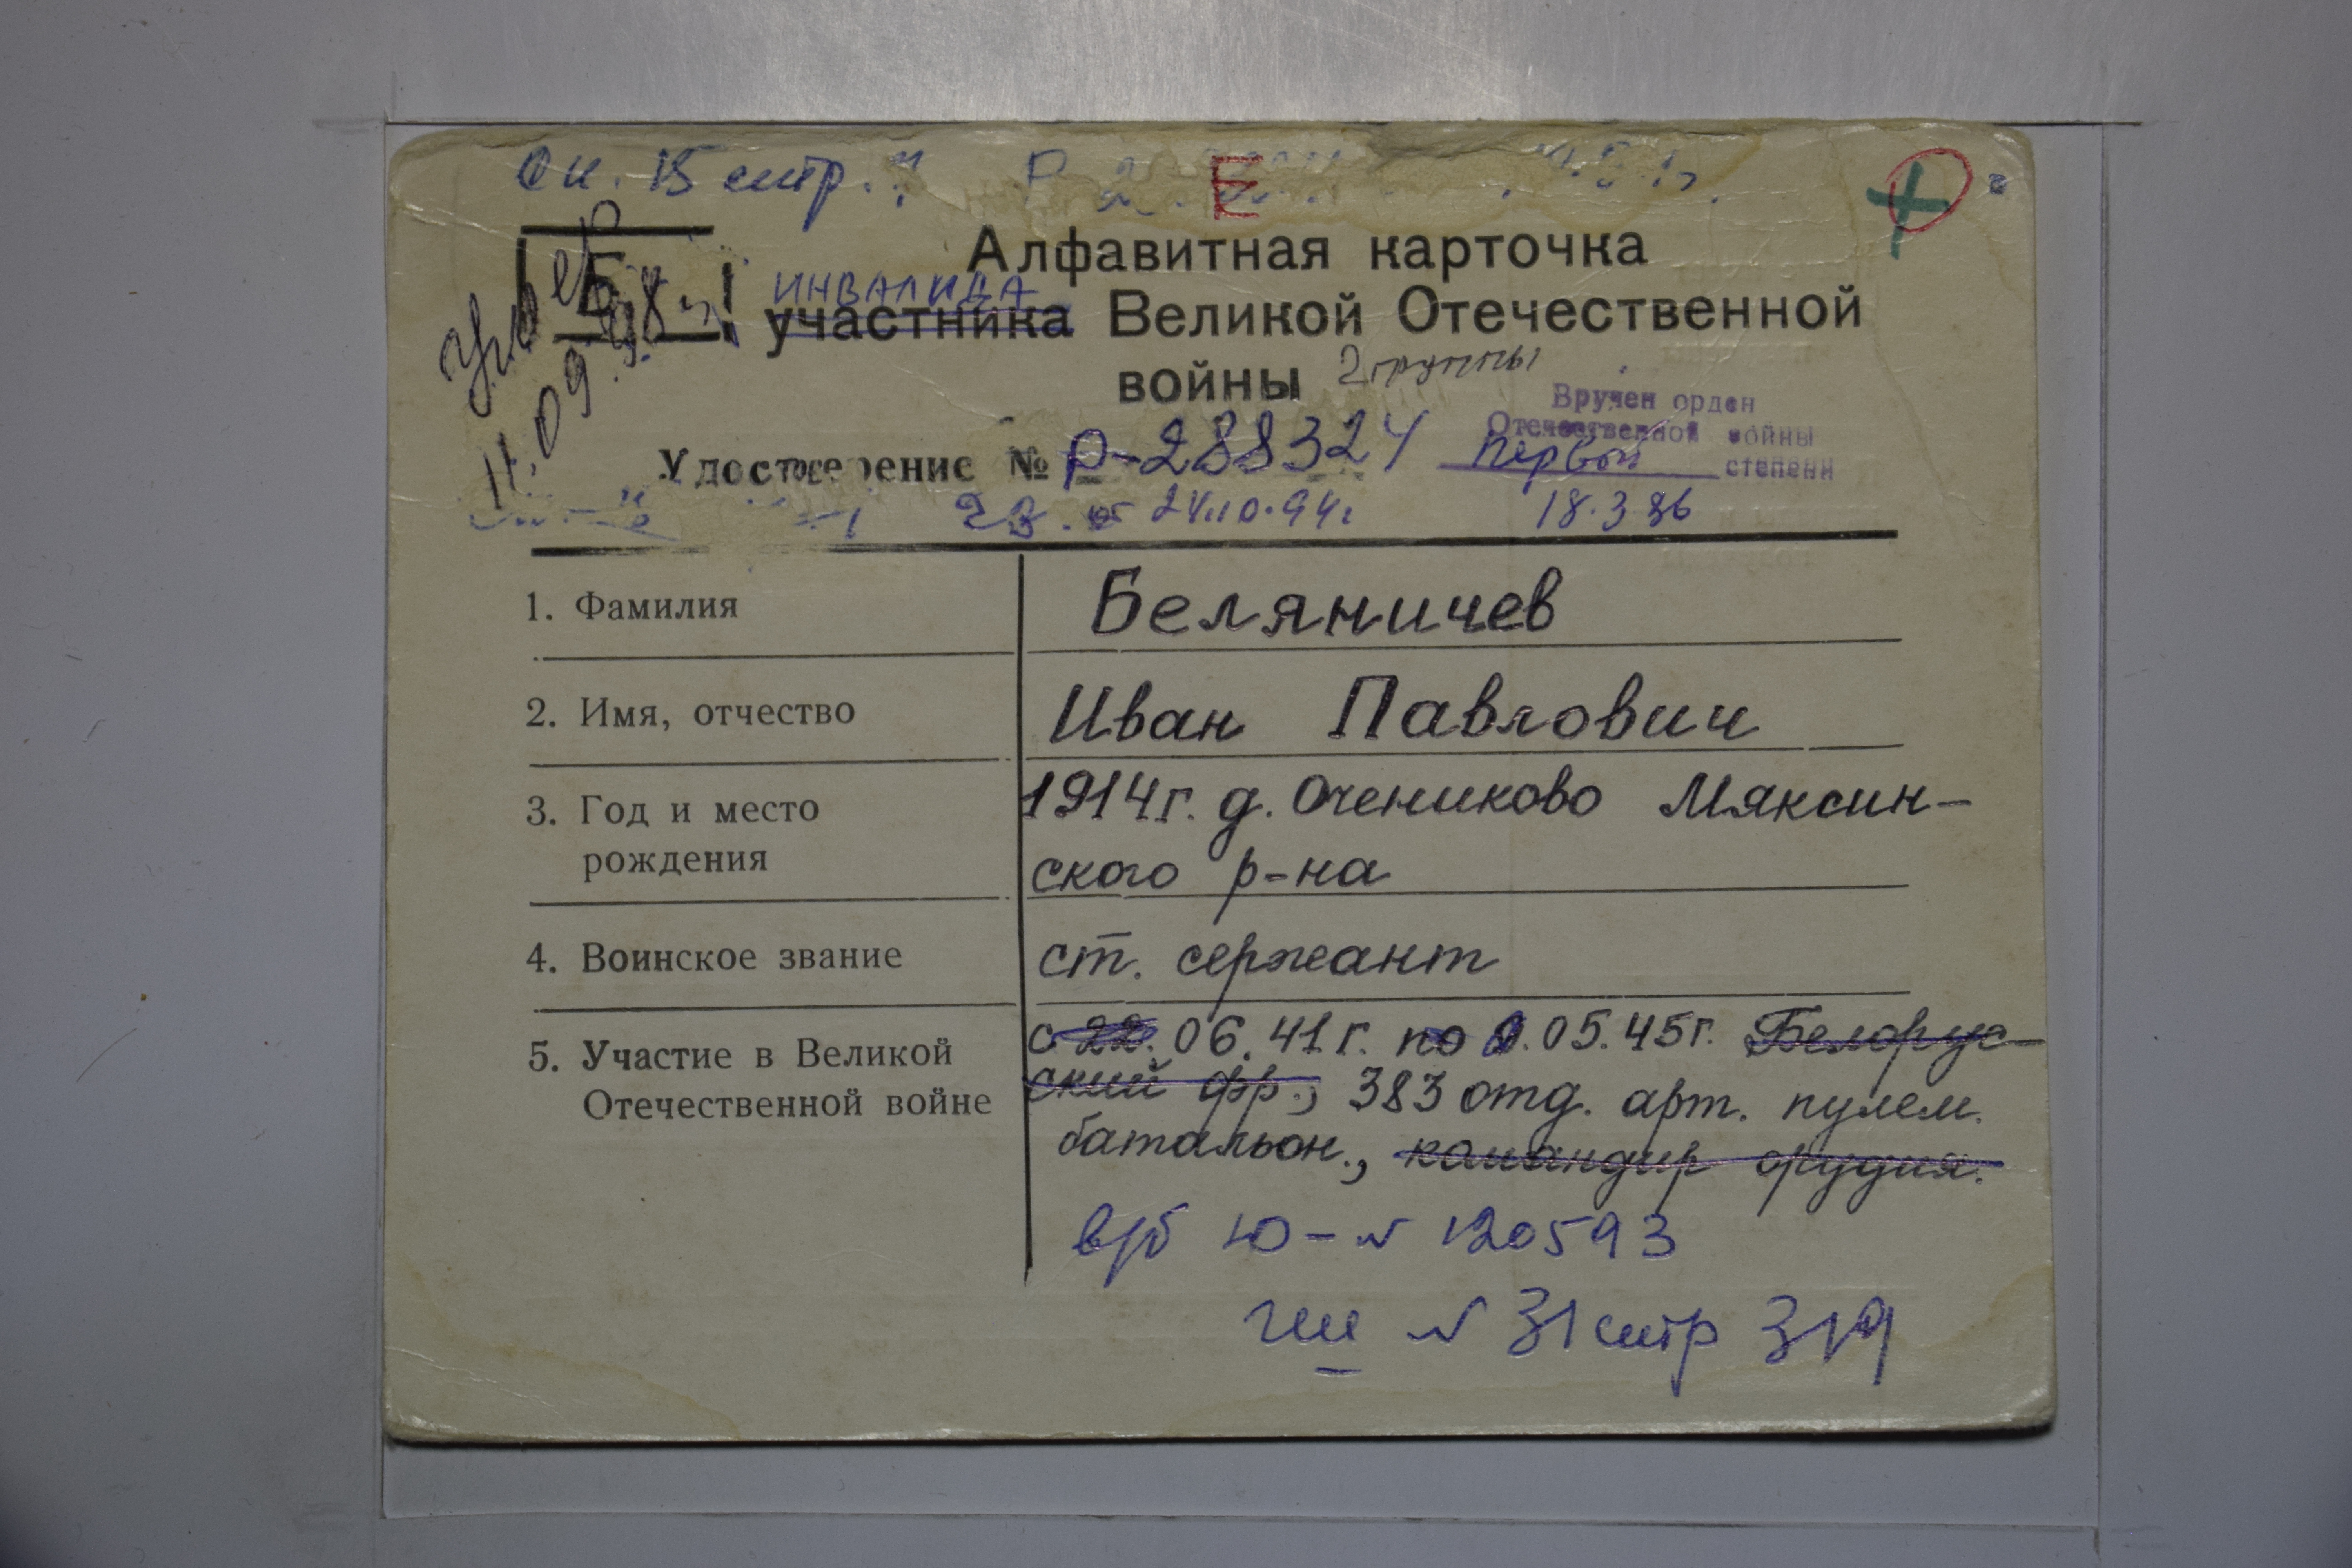 стр.
Е
Б
умер
11.09.98г
Алфавитная карточка
ИНВАЛИДА
участника Великой Отечественной
войны 2 группы
Вручен орден
Отечественной войны
первой степени
18.3.86
Удостоверение № Р-288324
24.10.94г
1. Фамилия Беляничев
2. Имя, отчество Иван Павлович
3. Год и место 1914г. д. Очениково Мяксин-
рождения ского р-на
4. Воинское звание ст. сержант
5. Участие в Великой с 22.06.41г. по 9.05.45г. Белорус-
Отечественной войне ский фр., 383 отд. арт. пулем.
батальон., командир орудия.
в/б Ю-№ 120593
№ 31 стр 319